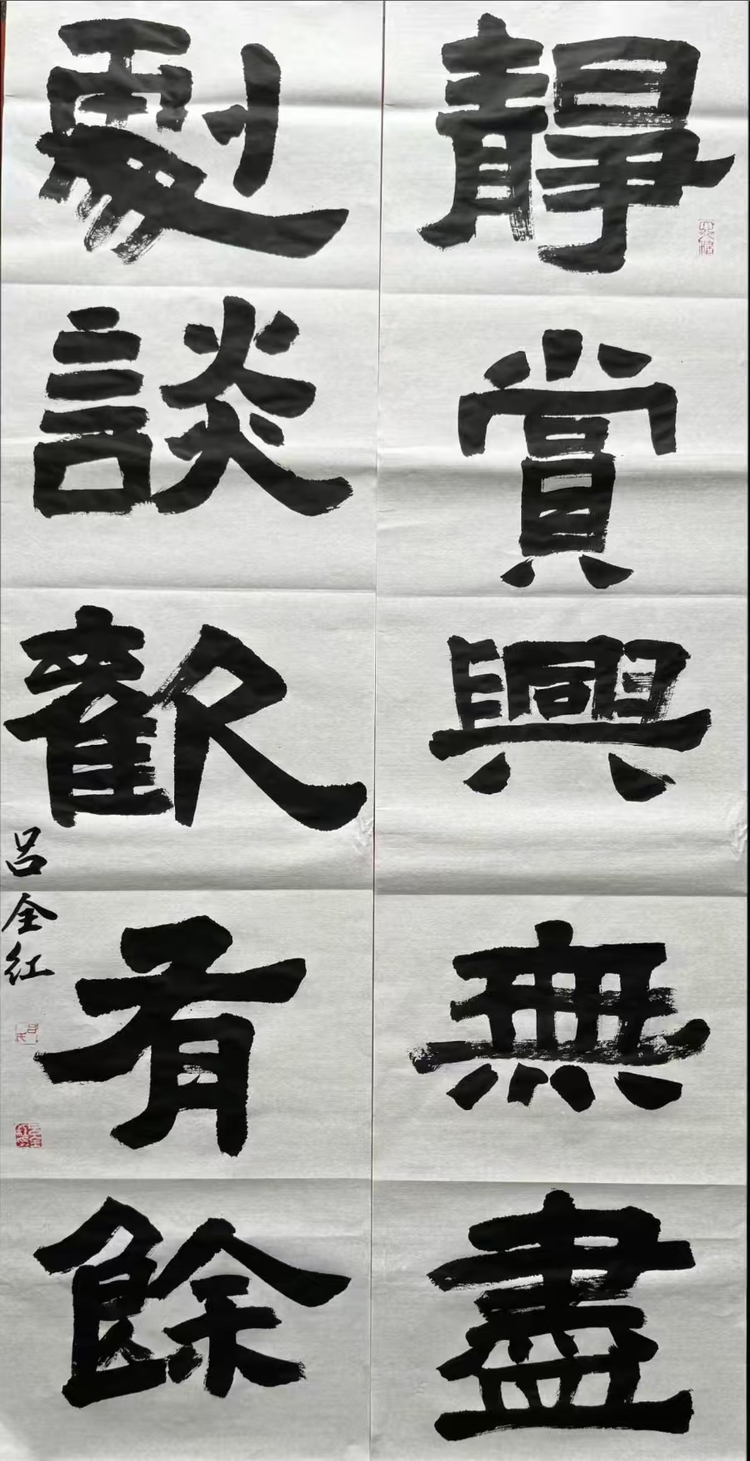 靜賞興無盡
劇談歡有餘
呂全紅